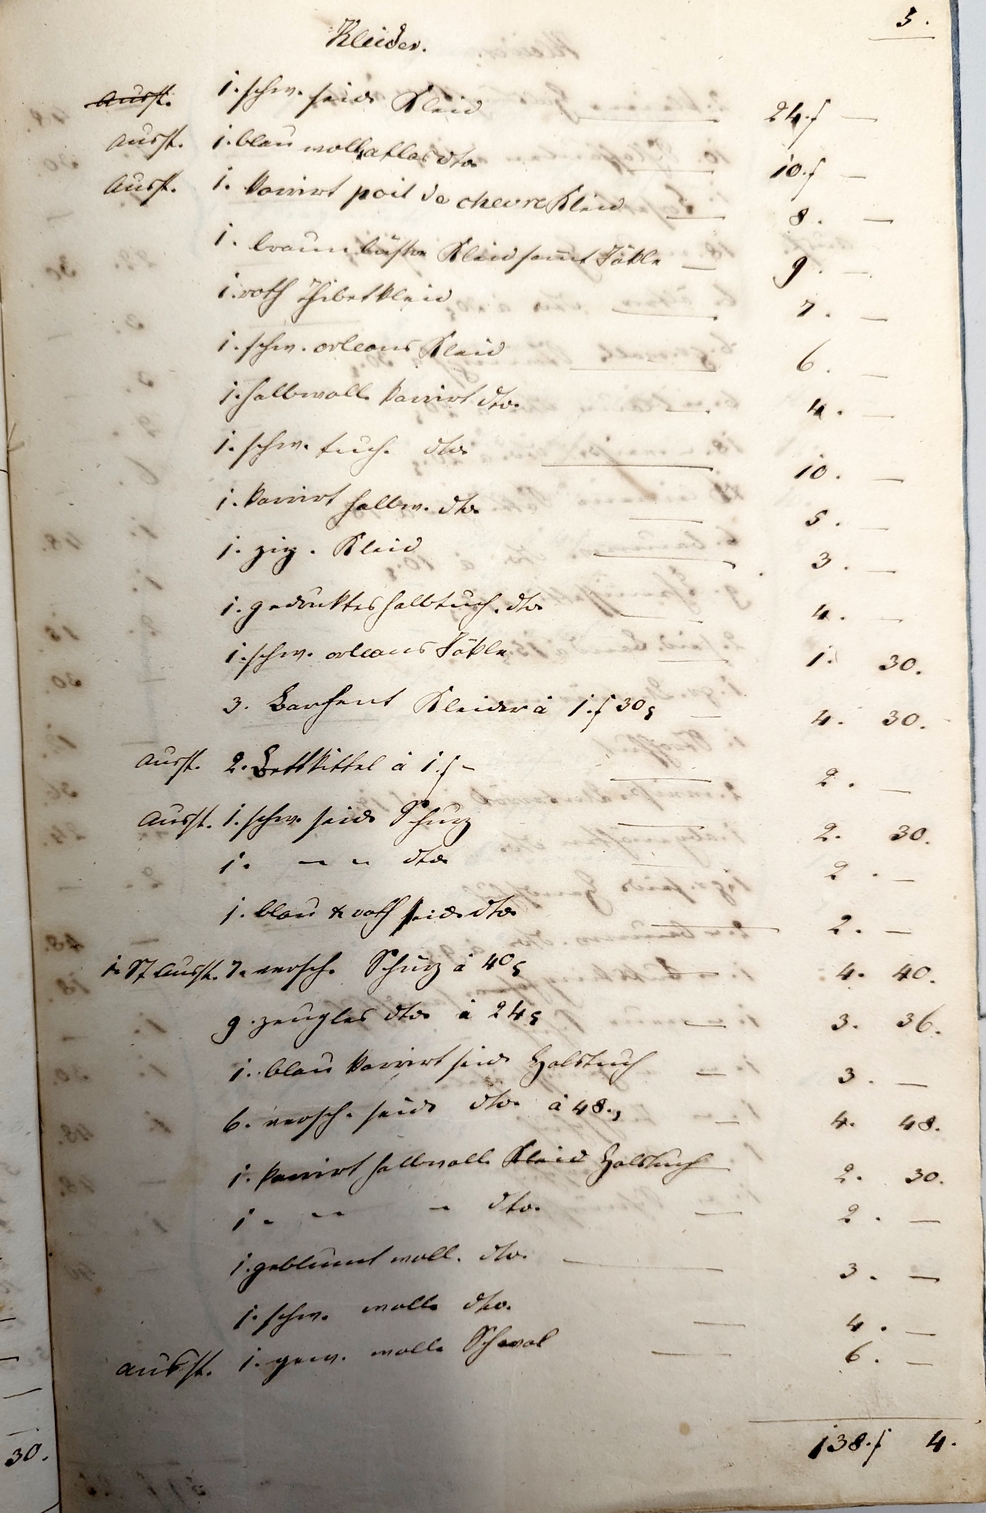 3.
Kleider.
Ausst. 1. schw. seid. Kleid — 24.f —
Ausst. 1. blau wollatlas dto. — 10.f —
Ausst. 1. karrirt poil de chevre Kleid — 8. —
1. braun lüstre Kleid sammt Jäkle — 9. —
1. roth Thibetkleid — 7. —
1. schw. orleans Kleid — 6. —
1. halbwoll. karrirt dto. — 4. —
1. schw. tuch. dto. — 10. —
1. karrirt halbw. dto. — 5. —
1. ziz. Kleid — 3. —
1. gedruktes halbtuch. dto. — 4. —
1. schw. orleans Jäkle — 1. 30.
3. Barchent Kleider à 1.f 30 — 4. 30.
Ausst. 2. Bettkittel à 1.f — — 2. —
Ausst. 1. schw. seid. Schurz — 2. 30.
1. — „ dto. — 2. —
1. blau & roth seid. dto. — 2. —
1. St Ausst. 7. versch. Schürz à 40 — 4. 40.
9. zeugles dto. à 24 — 3. 36.
1. blau karrirt seid. Halstuch — 3. —
6. versch. seid. dto. à 48. — 4. 48.
1. karrirt halbwoll. Kleid Halstuch — 2. 30.
1 „ „ „ dto. — 2. —
1. geblumt woll. dto. — 3. —
1. schw. woll. dto. — 4. —
Ausst. 1. gew. woll. Schawl — 6. —
138.f 4.
30.